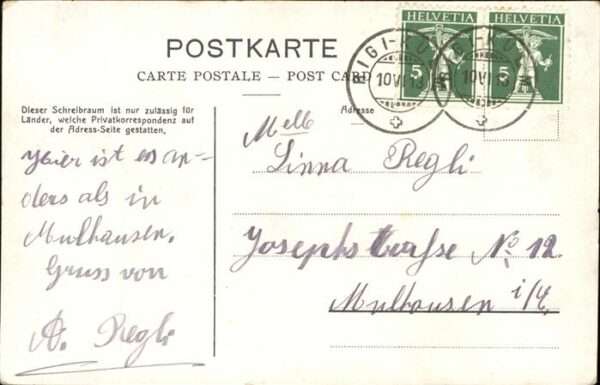 HELVETIA HELVETIA
5 5
RIGI-KULM
10 VI 13
POSTKARTE
CARTE POSTALE – POST CARD
Dieser Schreibraum ist nur zulässig für
Länder, welche Privatkorrespondenz auf
der Adress-Seite gestatten.
Adresse
Hier ist es an-
ders als in
Mulhausen.
Gruss von
A. Regli
Melle
Linna Regli
Josephstrasse No 12
Mulhausen i/E.